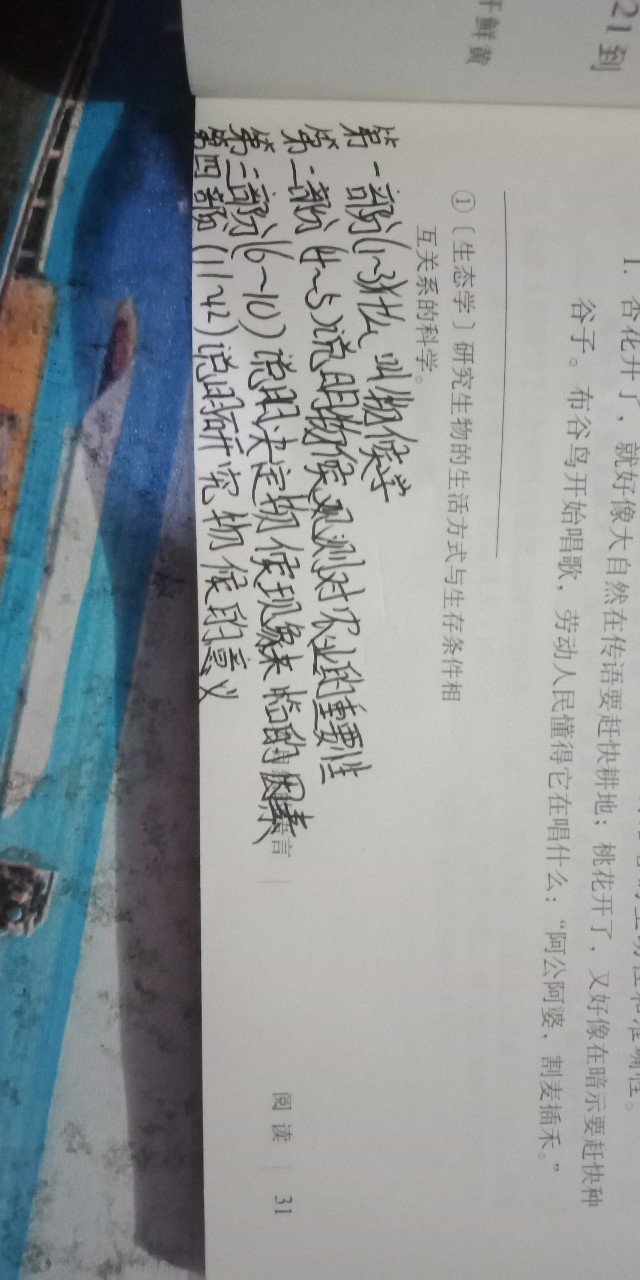 21 到
鲜 黄
性和准确性。
1. 杏花开了，就好像大自然在传语要赶快耕地；桃花开了，又好像在暗示要赶快种
谷子。布谷鸟开始唱歌，劳动人民懂得它在唱什么：“阿公阿婆，割麦插禾。”
①〔生态学〕研究生物的生活方式与生存条件相
互关系的科学。
第一部分(1~3)什么叫物候学
第二部分(4~5)说明物候观测对农业的重要性
第三部分(6~10)说明决定物候现象来临的因素
第四部分(11~12)说明研究物候的意义
言
阅 读 31